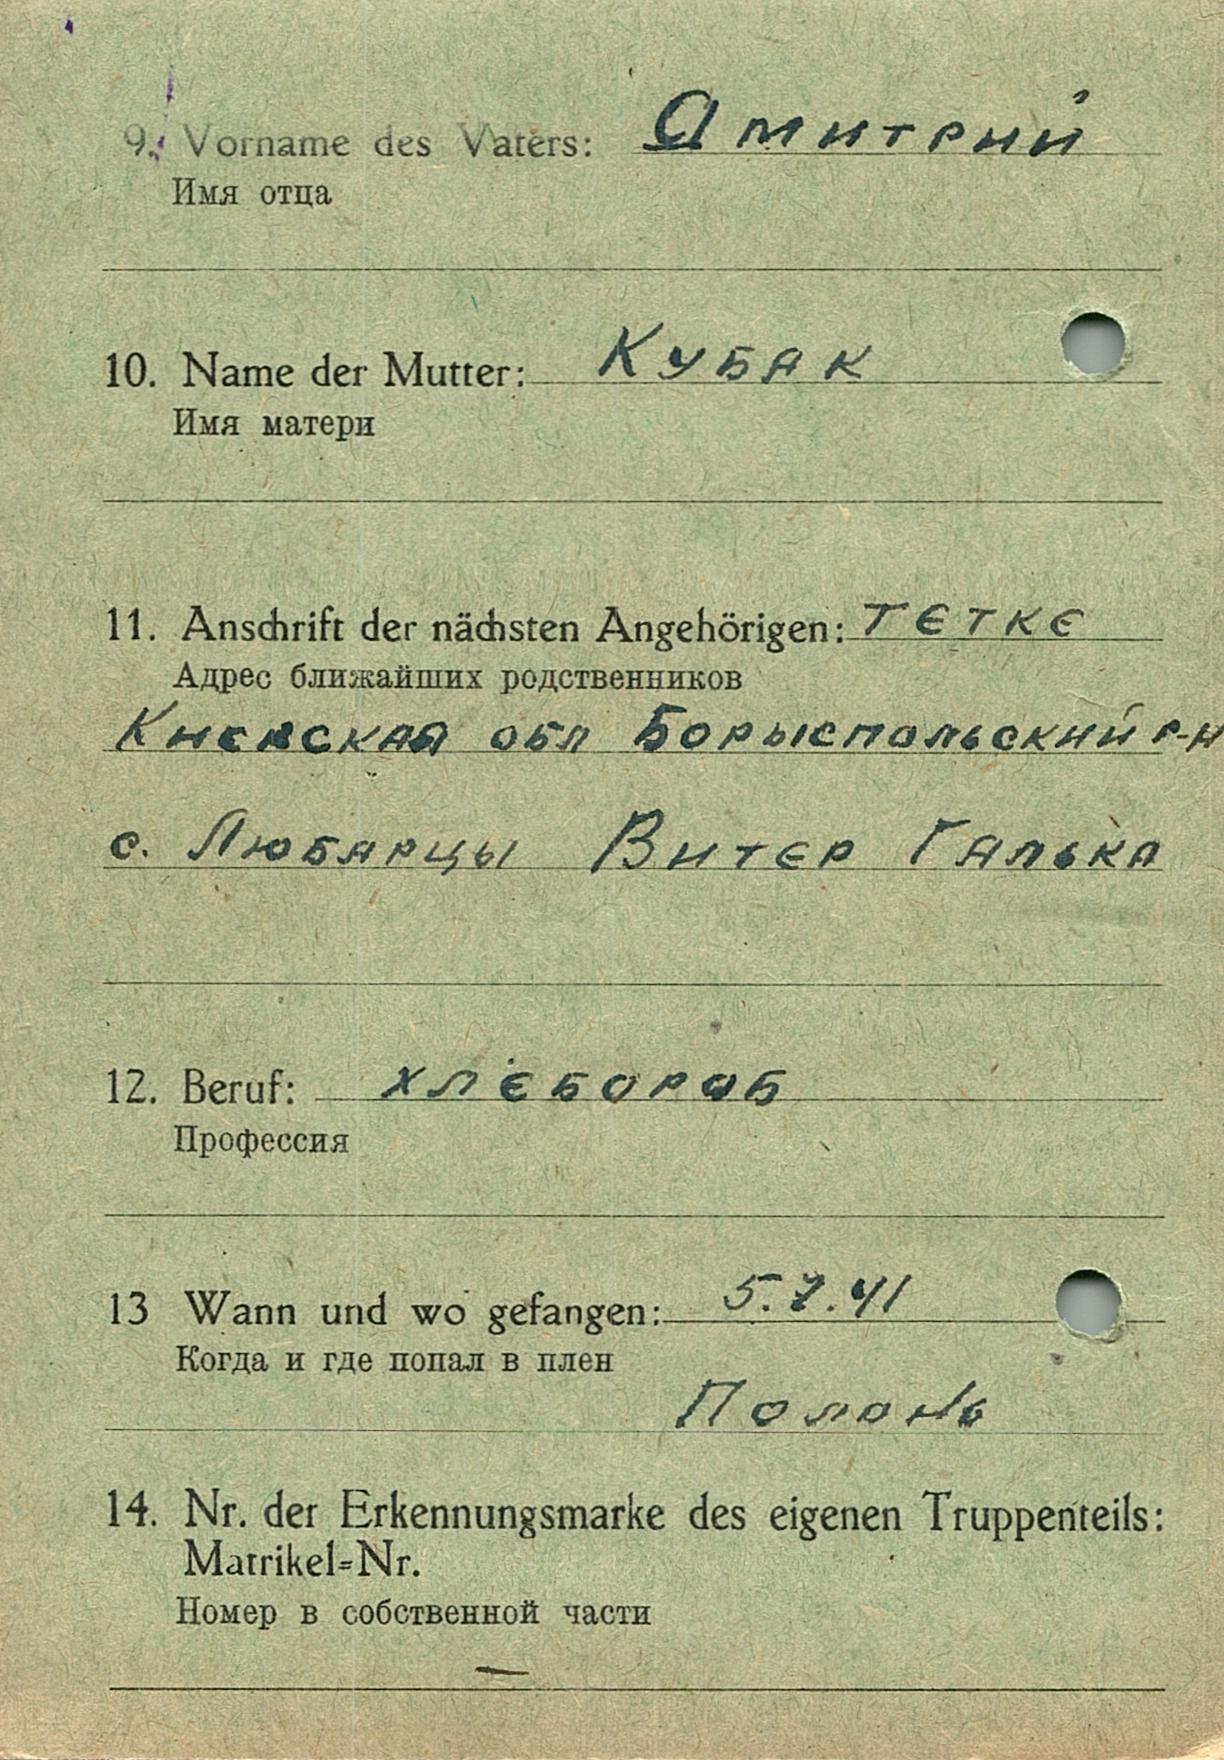 9. Vorname des Vaters: Дмитрий
Имя отца
10. Name der Mutter: Кубак
Имя матери
11. Anschrift der nächsten Angehörigen: тєткє
Адрес ближайших родственников
Києвская обл Борыспольский р-н
с. Любарцы Витєр Галька
12. Beruf: хлєбороб
Профессия
13 Wann und wo gefangen: 5.7.41
Когда и где попал в плен
Полонь
14. Nr. der Erkennungsmarke des eigenen Truppenteils:
Matrikel=Nr.
Номер в собственной части
—